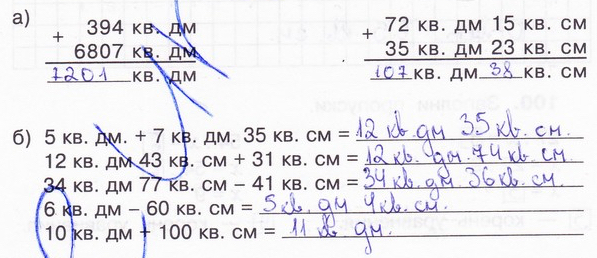 а) 394 кв. дм 72 кв. дм 15 кв. см
+ 6807 кв. дм + 35 кв. дм 23 кв. см
7201 кв. дм 107 кв. дм 38 кв. см
б) 5 кв. дм. + 7 кв. дм. 35 кв. см = 12 кв. дм 35 кв. см.
12 кв. дм 43 кв. см + 31 кв. см = 12 кв. дм. 74 кв. см.
34 кв. дм 77 кв. см – 41 кв. см = 34 кв. дм. 36 кв. см.
6 кв. дм – 60 кв. см = 5 кв. дм 4 кв. см.
10 кв. дм + 100 кв. см = 11 кв. дм.